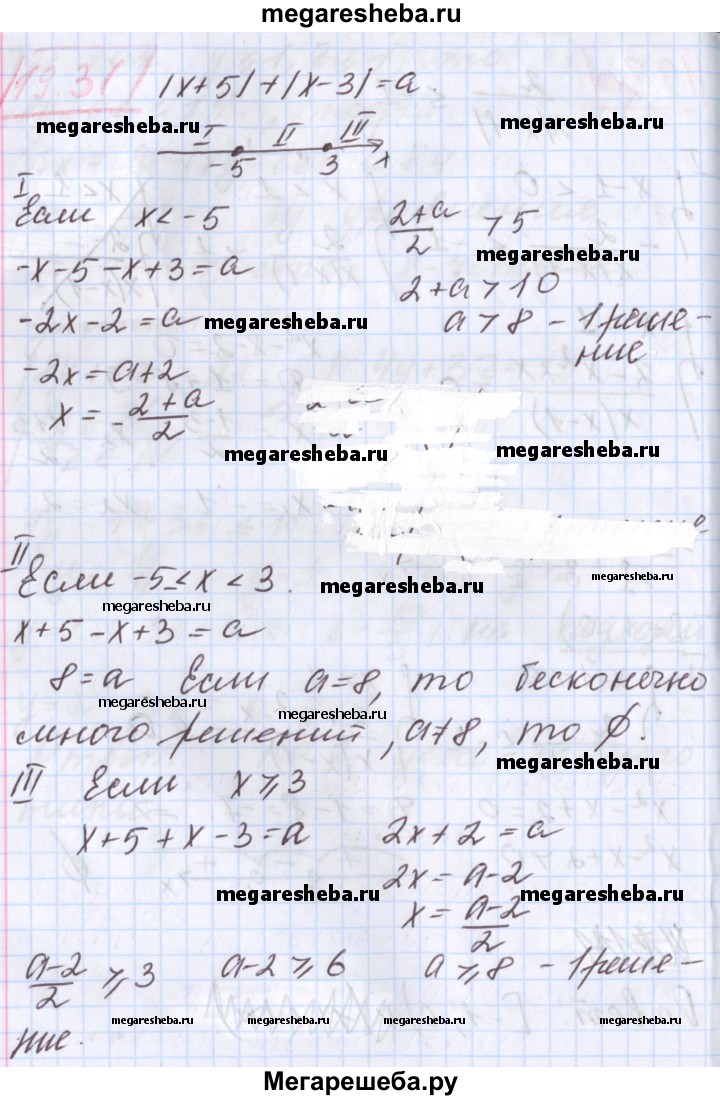 megaresheba.ru
19.31 |x+5|+|x-3|=a.
megaresheba.ru
megaresheba.ru
I II III
-5 3 x
I
Если x < -5
(2+a)/2 > 5
megaresheba.ru
-x-5-x+3=a
2+a>10
-2x-2=a
megaresheba.ru
a>8 - 1 реше-
ние
-2x=a+2
x=-(2+a)/2
megaresheba.ru
megaresheba.ru
II
Если -5≤x<3.
megaresheba.ru
megaresheba.ru
megaresheba.ru
x+5-x+3=a
8=a Если a=8, то бесконечно
megaresheba.ru
megaresheba.ru
много решений, a≠8, то ∅.
megaresheba.ru
III Если x⩾3
x+5+x-3=a
2x+2=a
2x=a-2
megaresheba.ru
megaresheba.ru
x=(a-2)/2
(a-2)/2 ⩾3 a-2⩾6 a⩾8 - 1 реше-
megaresheba.ru
megaresheba.ru
megaresheba.ru
ние.
Мегарешеба.ру